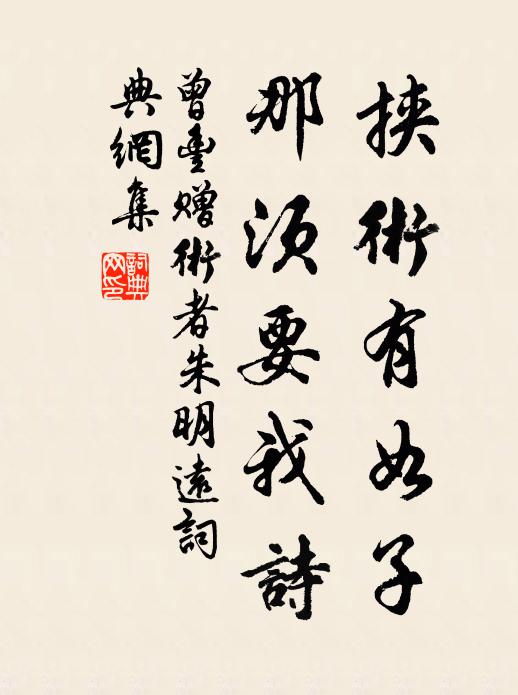 挾術有如子
那須要我詩
曾豐贈術者朱明遠詞
典網集
詞典
网印